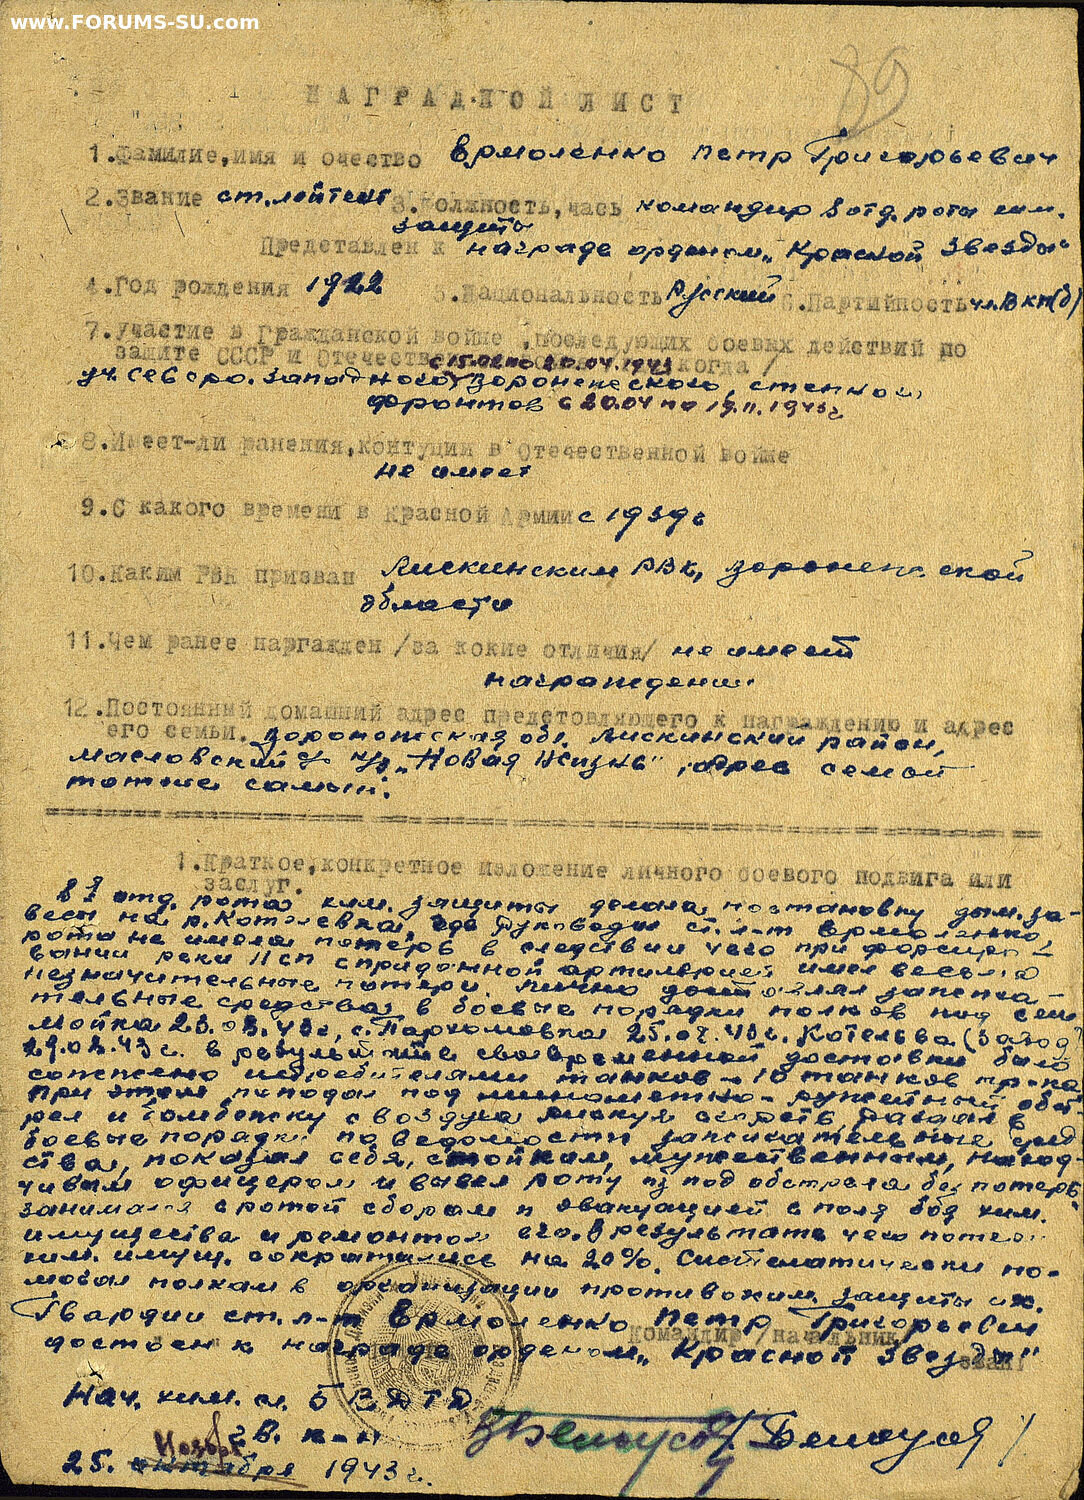 www.FORUMS-SU.com
89
НАГРАДНОЙ ЛИСТ
1.Фамилие,имя и очество Ермоленко Петр Григорьевич
2.Звание ст.лейтент 3.Должность,чась командир 8 отд. роты хим.
защиты
Представлен к награде орденом „Красной Звезды"
4.Год рождения 1922 5.Национальность Русский 6.Партийность чл.ВКП(б)
7.Участие в Гражданской войне ,последующих боевых действий по
защите СССР и Отечестве когда /
с 15.02 по 20.04.1943
уч. северо. западного, воронежского, степного
фронтов с 20.04 по 19.11.1943г
8.Имеет-ли ранения,контуции в Отечественной войне
не имеет
9.С какого времени в Красной Армии с 1939г
10.Каким РВК призван Лискинским РВК, воронежской
области
11.Чем ранее наргажден /за кокие отличия/ не имеет
награждений.
12.Постоянный домашний адрес предстовляющего к награждению и адрес
его семьи. Воронежская обл. Лискинский район,
Масловский с/с к/з „Новая Жизнь", адрес семьи
тотже самый.
1.Краткое,конкретное изложение личного боевого подвига или
заслуг.
8я отд. рота хим. защиты делала постановку дым. за-
весы на р. Котелевка, где руководил ст. л-т Ермоленко
рота не имела потерь в следствии чего при форсиро-
вании реки 11 сп с приданной артилерией имел весьма
незначительные потери, лично доставлял зажига-
тельные средства в боевые порядки полков под
23.08.43г, с. Пархомовка 25.08.43г. Котельва (Завод)
29.08.43г. в результате своевременной доставки было
сожжено истребителями танков - 10 танков пр-ка
При этом попадал под минометно-ружейный обст-
рел и бомбежку с воздуха рискуя
боевые порядки зажигательные сред
ства, показал себя, стойким, мужественным, наход-
чивым офицером и вывел роту из под обстрела без потерь
занимался с ротой сбором и эвакуацией с поля боя хим.
имущества и ремонтом его. В результате чего потери
хим. имущ. сократились на 20%. Систематически по-
могал полкам в организации противохим. защиты их.
Гвардии ст. л-т Ермоленко Петр Григорьевич
Командир/начальник
достоен к награде орденом „Красной Звезды"
Нач. хим. сл. 5 ГВ ДТД
ГВ. к-н Белоусов
Ноября
25. октября 1943г.